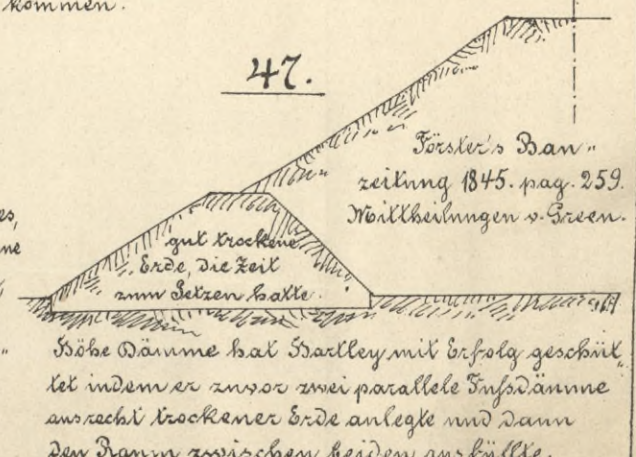 kommen.
47.
Förster's Bau-
zeitung 1845. pag. 259.
Mittheilungen v. Green.
es,
ne
gut trockene
Erde, die Zeit
zum Setzen hatte.
Höhe Dämme hat Hartley mit Erfolg geschüt-
tet indem er zuvor zwei parallele Fußdämme
aus recht trockener Erde anlegte und dann
den Raum zwischen beiden ausfüllte.